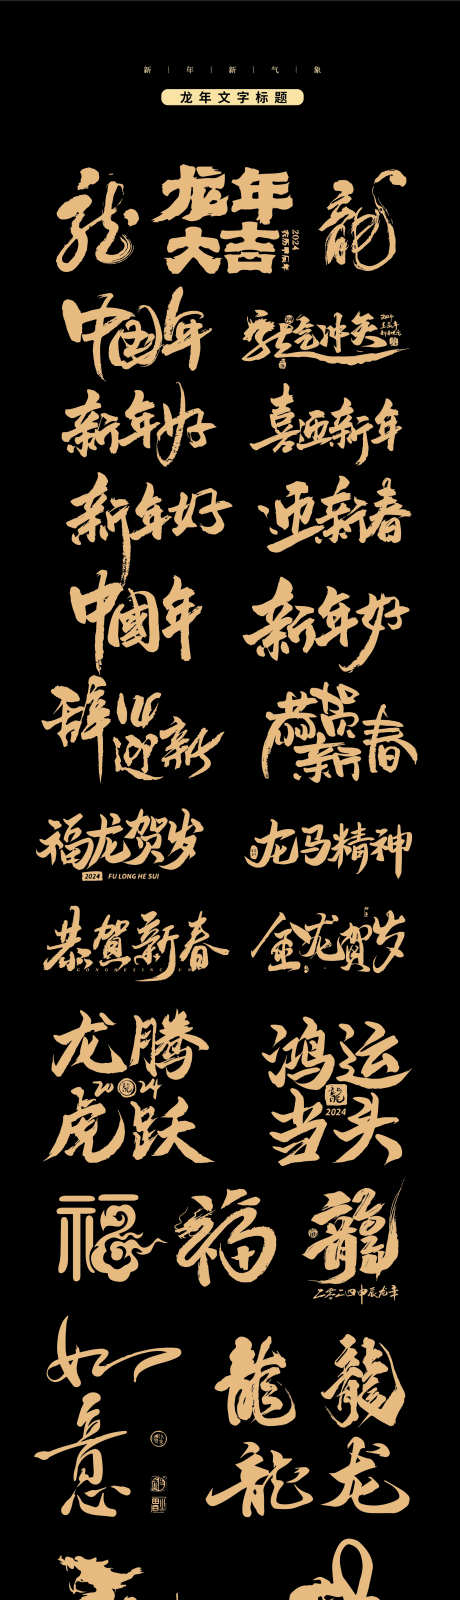 新 | 年 | 新 | 气 | 象
龙年文字标题
龍
龙年
大吉
2024
农历甲辰年
龍
中国年
龙气冲天
新年好
喜迎新年
新年好
迎新春
中國年
新年好
辞旧
迎新
恭贺
新春
福龙贺岁
2024 FU LONG HE SUI
龙马精神
恭贺新春
金龙贺岁
龙腾
2024
虎跃
鸿运
龍
2024
当头
福
福
龍
二零二四甲辰龙年
如
意
龍
龍
龍
龙